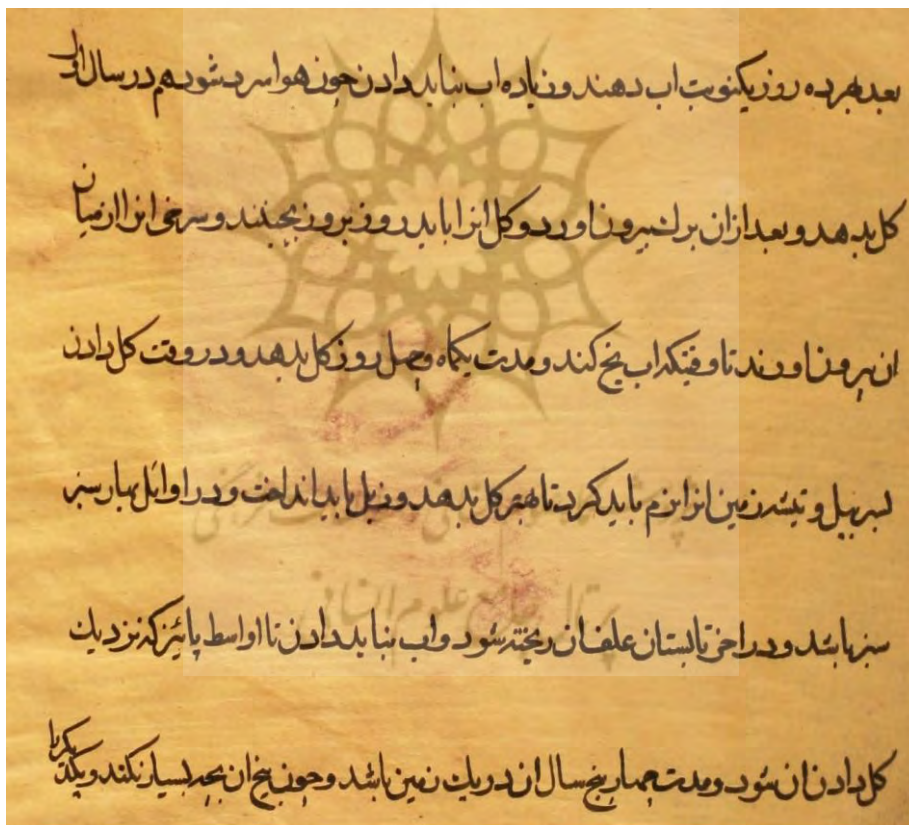 بعد هر ده روز یکنوبت اب دهند و زیاده اب نباید دادن چون هوا سرد شود هم در سال اول
کل بدهد و بعد ازان برك بیرون اورد و کل انرا باید روز بروز بچینند و سرخی انرا از میان
ان بیرون اورند تا وقتیکه اب یخ کند و مدت یکماه و چهل روز کل بدهد و در وقت کل دادن
بسر بیل و تیشه زمین انرا نرم باید کرد تا بهتر کل بدهد و زبل باید انداخت و در اوائل بهار سبز
سبز باشد و در اخر تابستان علف ان ریخته شود و اب نباید دادن تا اواسط پائیز که نزدیك
کل دادن ان شود و مدت چهار پنج سال ان در یك زمین باشد و چون بیخ ان بچه بسیار نکند و
پرتال جامع علوم انسانی